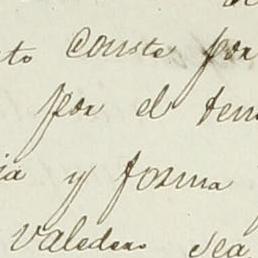 to conste por
por el tem
ia y forma
valedero sea